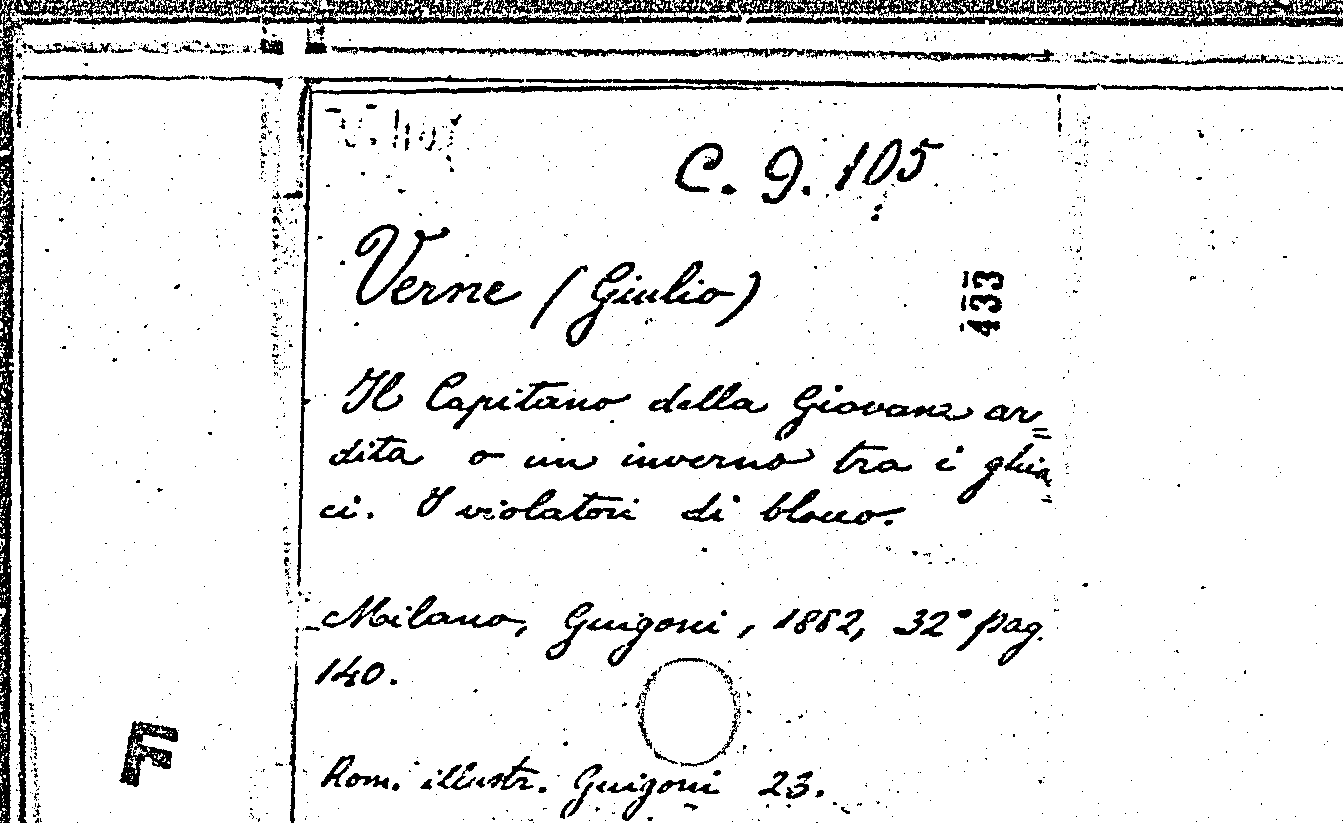 C. 9. 105
Verne (Giulio)
433
Il Capitano della Giovane ar=
dita o un inverno tra i ghiac
ci. I violatori di blocco.
Milano, Guigoni, 1882, 32° pag.
140.
F
Rom. illustr. Guigoni 23.